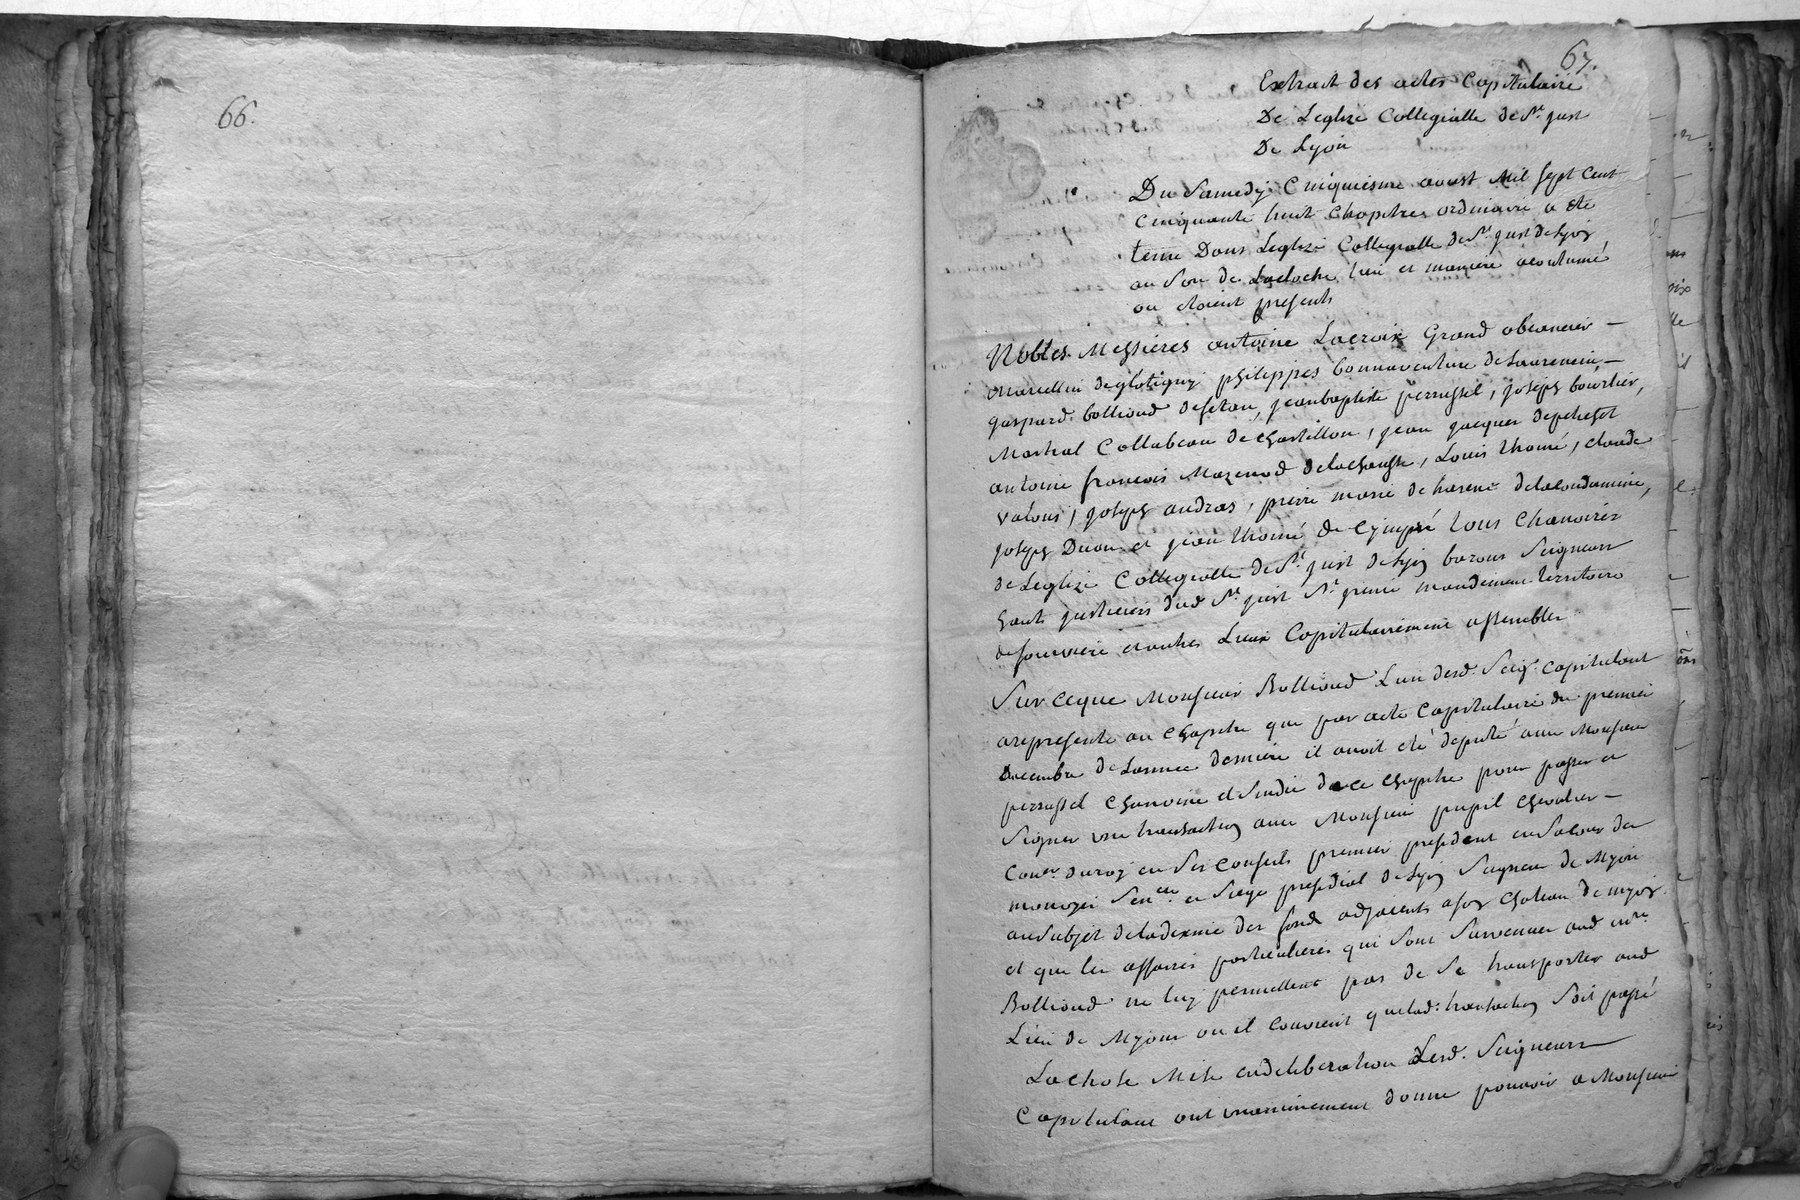 66.
67.
Extrait des actes Capitulaire
De Leglise Collegialle de St. just
De Lyon
Du Samedy Cinquiesme aoust Mil sept cent
Cinquante huit Chapitres ordinaire a ete
tenu Dans Leglise Collegialle de St. just de Lyon
au Son de Lacloche, lieu et maniere acoutumé
ou etoient presents
Nobles Messieres antoine Lacroix Grand obeancier
Marcellin deglatigny philippes bonnaventure de
gaspard bollioud defetan, jean baptiste perrussel, joseph bourlier,
Martial Collabeau de Chastillon, jean jacques
antoine francois Mazenod, Louis thomé, claude
Valous, joseph andras, pierre marie de harenc delacondamine,
joseph Duon et jean thomé de tous Chanoines
de Leglise Collegialle de St. just de Lyon barons Seigneurs
hauts justiciers dud St. just St. jrenée mandement territoire
defourviere etautres Lieux Capitulairement assembles
Sur ceque Monsieur Bollioud Lun desd. Seigr. capitulant
arepresente au Chapitre que par acte Capitulaire du premier
Decembre de Lannee derniere il avoit eté deputé avec Monsieur
perrussel Chanoine et Sindic de ce Chapitre pour passer et
Signer une transaction avec Monsieur pupil chevalier
Coner. duroy en Ses Conseils premier president en Lacour des
monoyes Senee. et Siege presidial de Lyon Seigneur de Myon
ausubjet deladixme des fonds adjacents ason Chateau de myon
et que les affaires particulieres qui sont survenues aud mre
Bollioud ne luy permettent pas de Se transporter aud
Lieu de Myons ou il convient quelad: transaction Soit passé
La chose Mise endeliberation Lesd. Seigneurs
Capitulans ont unanimement donne pouvoir a Monsieur